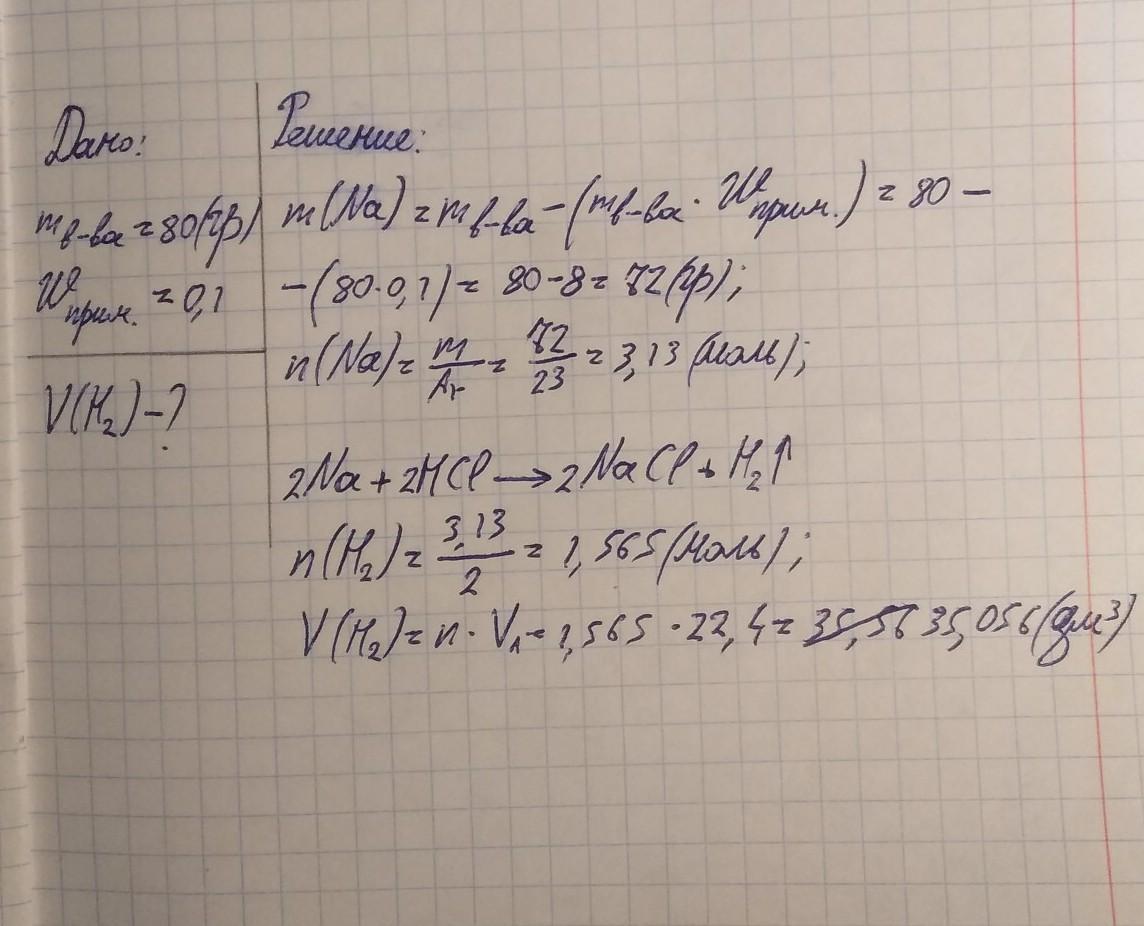 Дано:
m в-ва = 80 (гр)
W прим. = 0,1
V(H₂) - ?
Решение:
m(Na) = m в-ва - (m в-ва · W прим.) = 80 -
- (80·0,1) = 80-8 = 72 (гр);
n(Na) = m/Ar = 72/23 = 3,13 (моль);
2Na + 2HCl → 2NaCl + H₂↑
n(H₂) = 3,13/2 = 1,565 (моль);
V(H₂) = n · Vₙ = 1,565 · 22,4 = 35,56 35,056 (дм³)